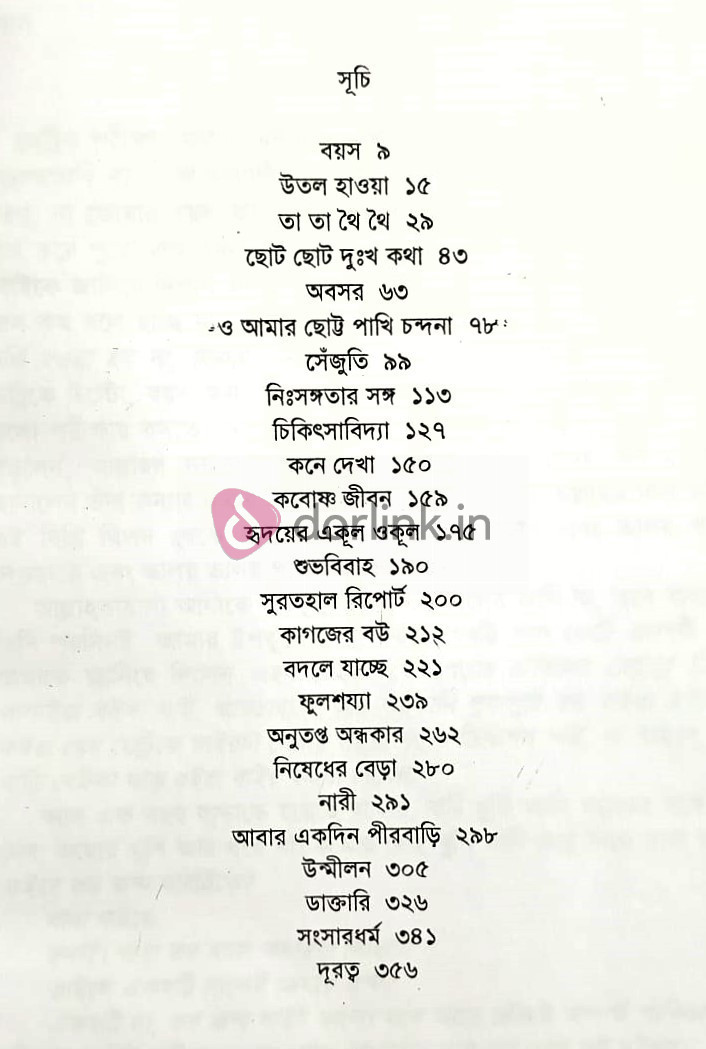 সূচি
বয়স ৯
উতল হাওয়া ১৫
তা তা থৈ থৈ ২৯
ছোট ছোট দুঃখ কথা ৪৩
অবসর ৬৩
ও আমার ছোট্ট পাখি চন্দনা ৭৮
সেঁজুতি ৯৯
নিঃসঙ্গতার সঙ্গ ১১৩
চিকিৎসাবিদ্যা ১২৭
কনে দেখা ১৫০
কবোষ্ণ জীবন ১৫৯
dorlink.in
হৃদয়ের একূল ওকূল ১৭৫
শুভবিবাহ ১৯০
সুরতহাল রিপোর্ট ২০০
কাগজের বউ ২১২
বদলে যাচ্ছে ২২১
ফুলশয্যা ২৩৯
অনুতপ্ত অন্ধকার ২৬২
নিষেধের বেড়া ২৮০
নারী ২৯১
আবার একদিন পীরবাড়ি ২৯৮
উন্মীলন ৩০৫
ডাক্তারি ৩২৬
সংসারধর্ম ৩৪১
দূরত্ব ৩৫৬